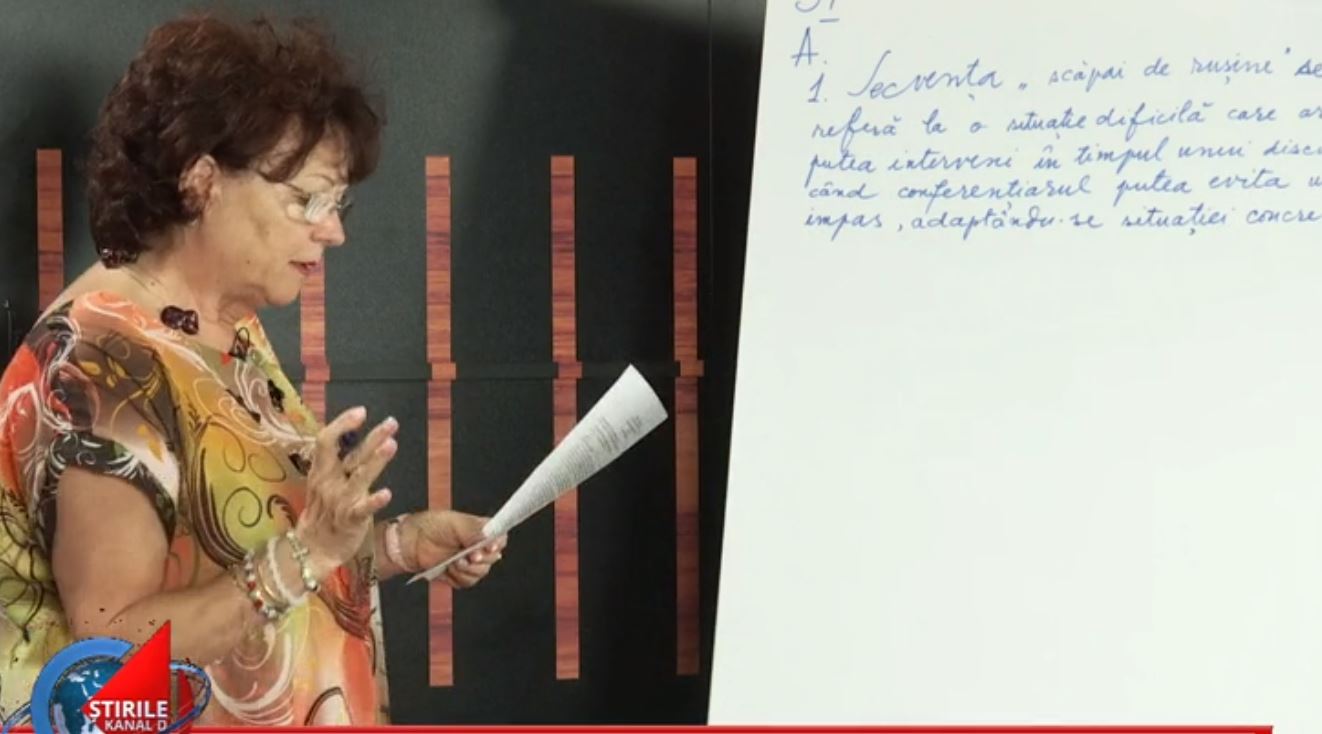 A.
1. Secvența „scăpai de rușine" se
referă la o situație dificilă care ar
putea interveni în timpul unui disc
când conferențiarul putea evita u
impas, adaptându-se situației concre
ȘTIRILE
KANAL D